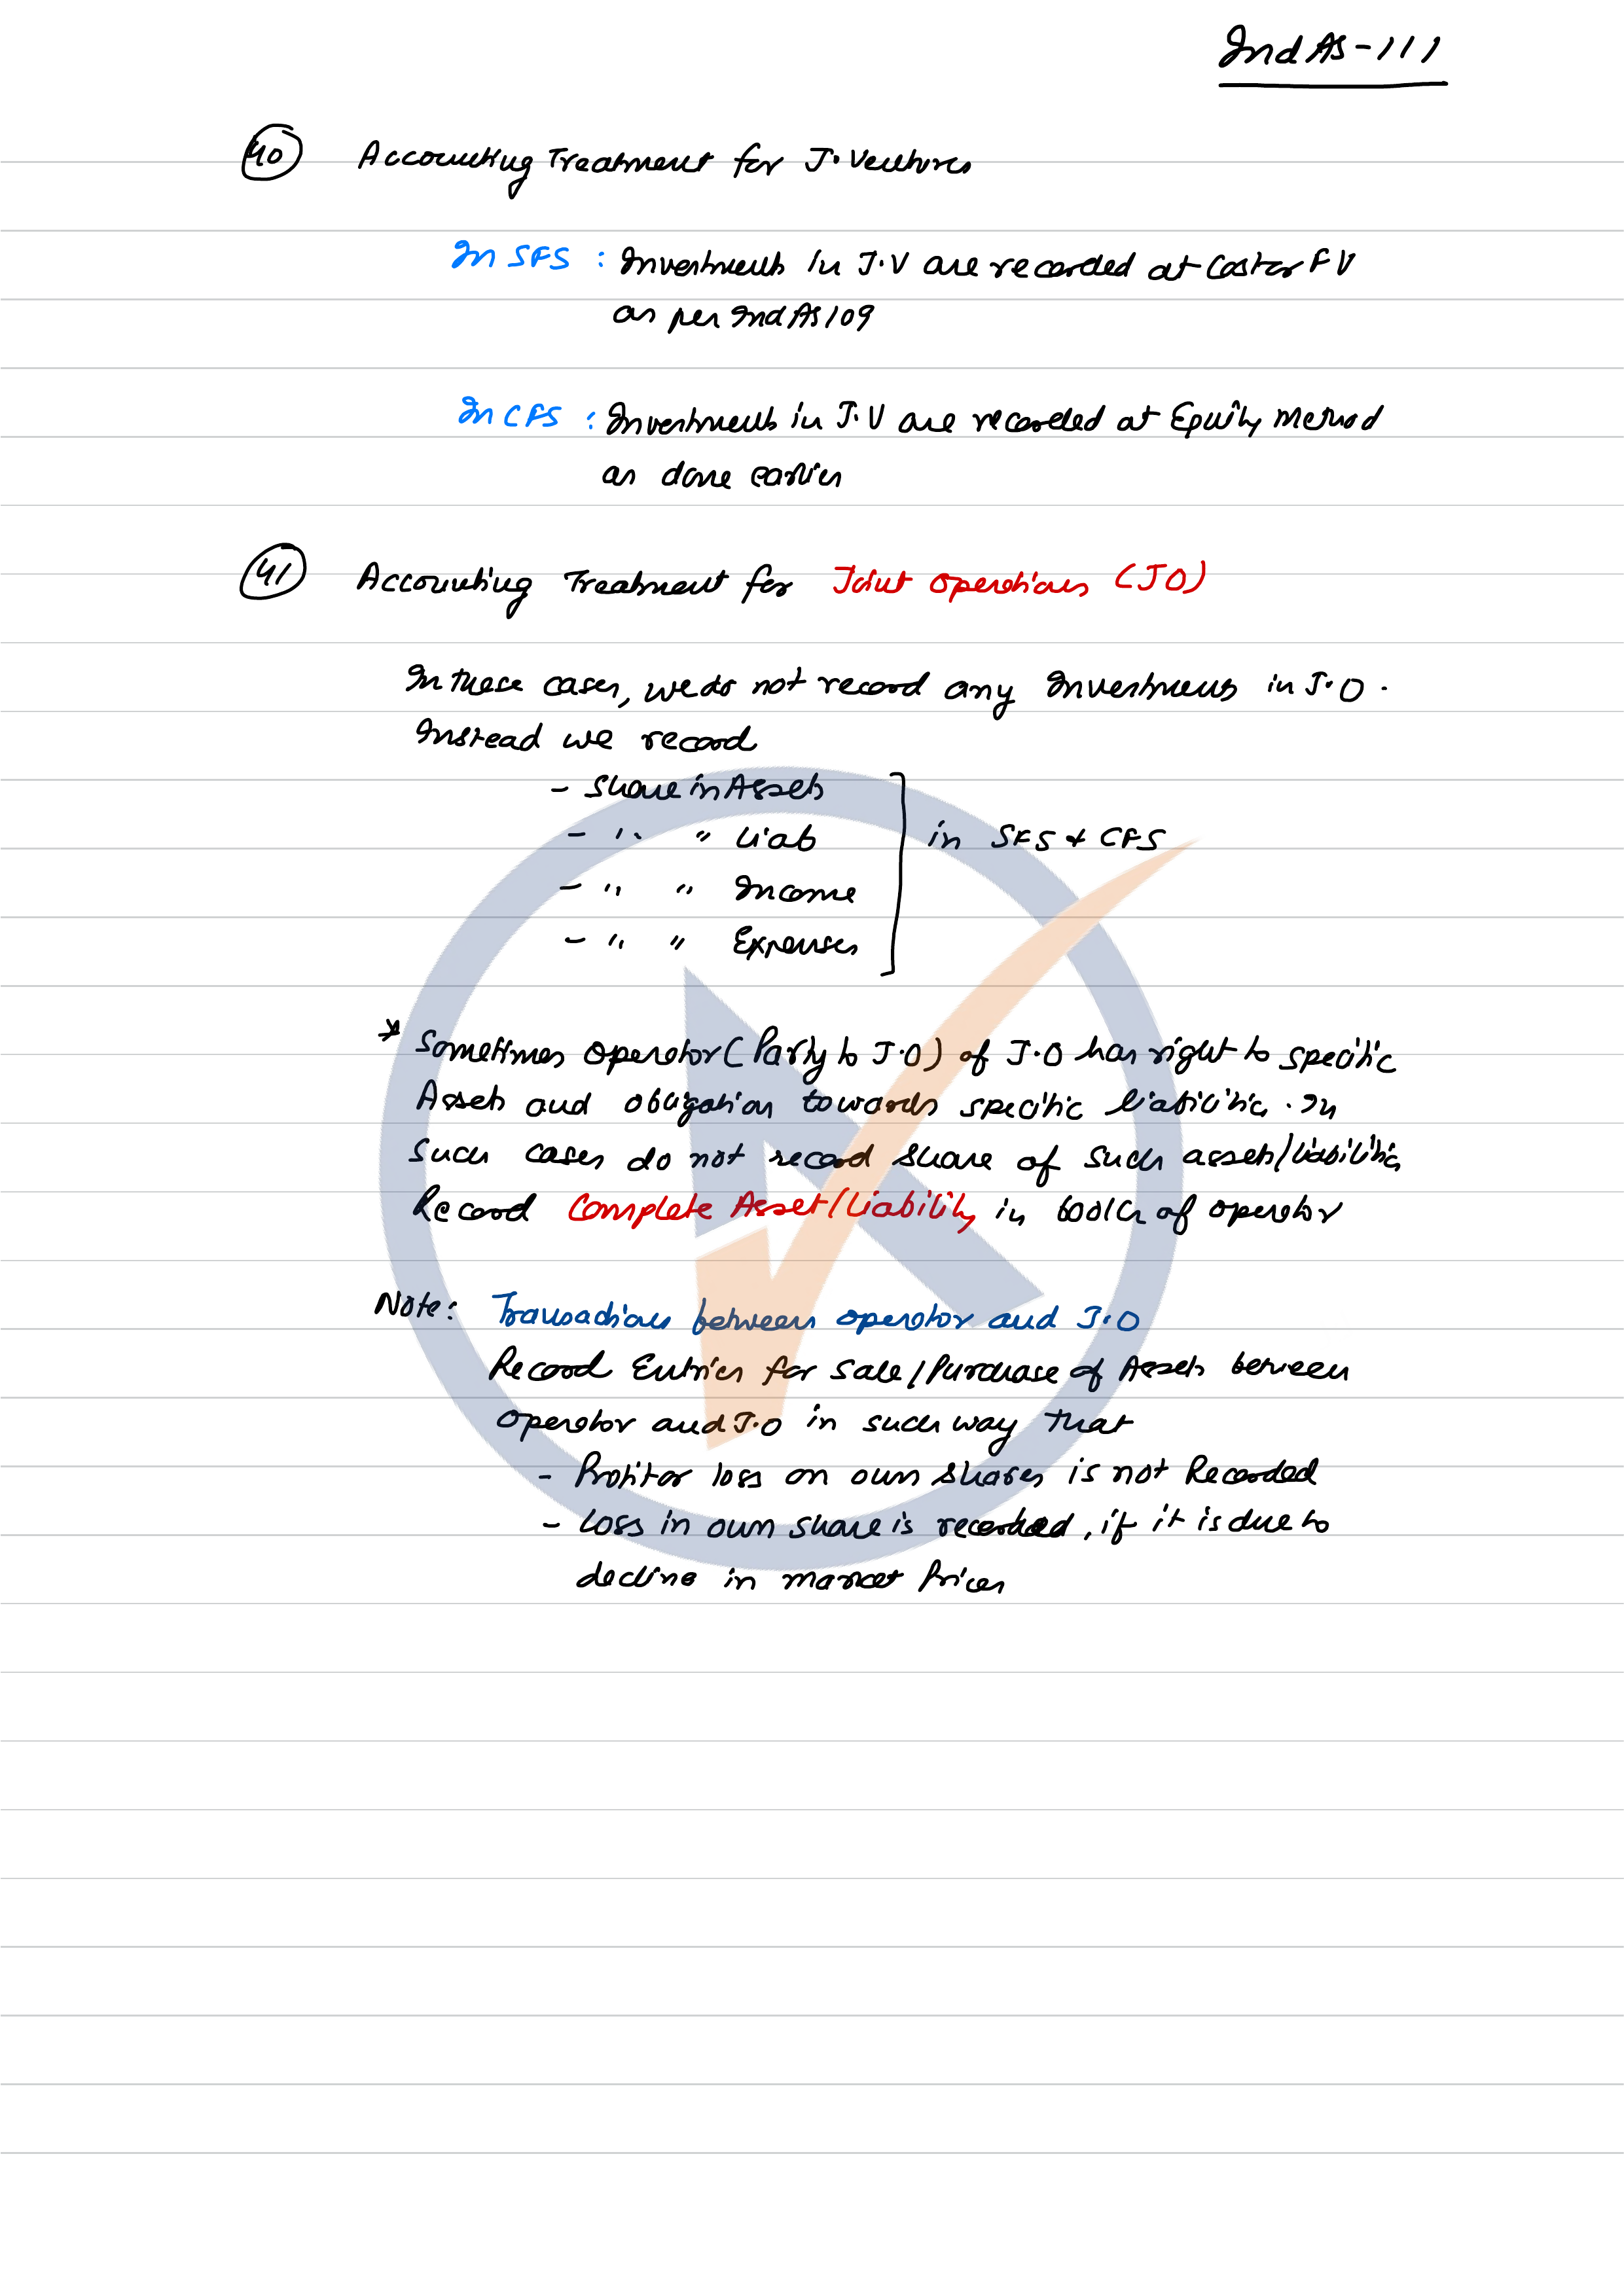 Ind AS-111
40 Accounting Treatment for J. Ventures
In SFS : Investments in J.V are recorded at Cost or FV
as per Ind AS 109
In CFS : Investments in J.V are recorded at Equity Method
as done earlier
41 Accounting Treatment for Joint Operations (JO)
In these cases, we do not record any Investments in J.O.
Instead we record
- Share in Assets
- " " Liab
- " " Income
- " " Expenses
in SFS & CFS
* Sometimes operator (Party to J.O) of J.O has right to specific
Assets and obligation towards specific liabilities. In
Such cases do not record share of such assets/liabilities
Record Complete Asset/Liability in books of operator
Note: Transactions between operator and J.O
Record Entries for Sale/Purchase of Assets between
operator and J.O in such way that
- Profit or loss on own shares is not Recorded
- Loss in own share is recorded, if it is due to
decline in market Prices